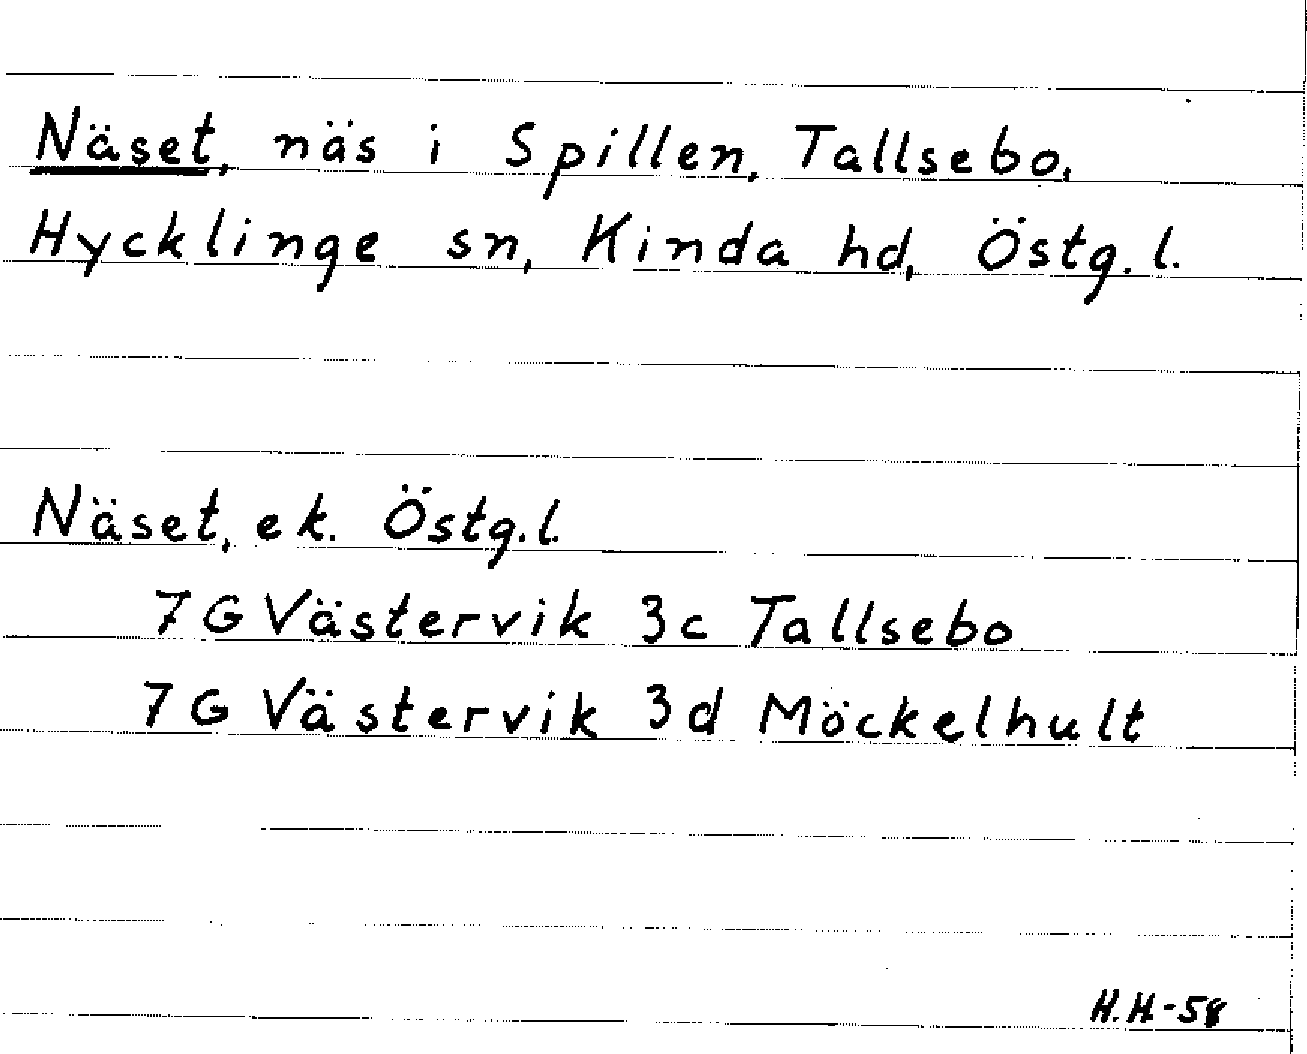 Näset, näs i Spillen, Tallsebo,
Hycklinge sn, Kinda hd, Östg.l.
Näset, ek. Östg.l.
7G Västervik 3c Tallsebo
7G Västervik 3d Möckelhult
H.H-58